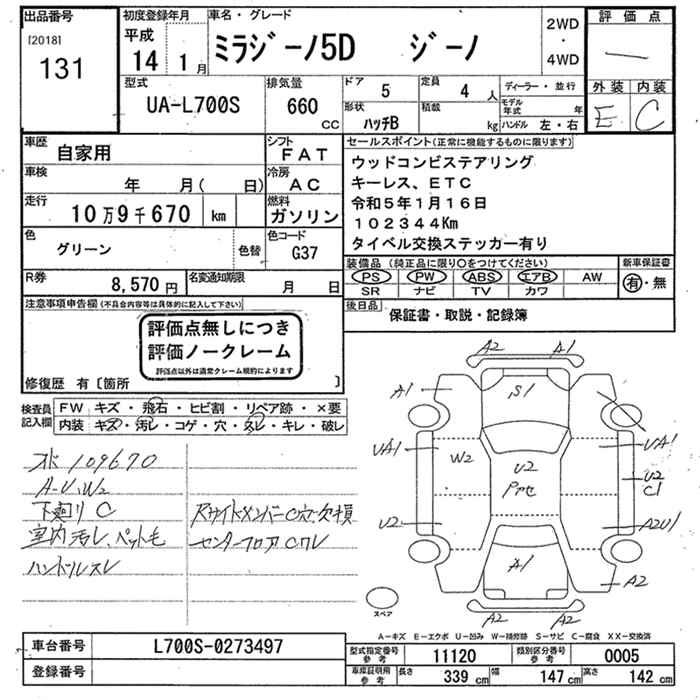 出品番号
[2018]
131
初度登録年月
平成
14 1月
車名・グレード
ミラジーノ5D ジーノ
2WD
・
4WD
評価点
—
外装 内装
E C
型式
UA-L700S
排気量
660
CC
ドア
5
定員
4人
形状
ハッチB
積載
kg
ディーラー・並行
モデル年式 年
ハンドル 左・右
車歴
自家用
シフト
FAT
車検
年 月( 日)
冷房
AC
走行
10万9千670 km
燃料
ガソリン
色
グリーン
色替
色コード
G37
R券
8,570円
名変通知期限
月 日
セールスポイント(正常に機能するものに限ります)
ウッドコンビステアリング
キーレス、ETC
令和5年1月16日
102344Km
タイベル交換ステッカー有り
装備品 (純正品に限り〇をつけてください)
PS PW ABS エアB AW
SR ナビ TV カワ
新車保証書
有・無
後日品
保証書・取説・記録簿
注意事項申告欄(不具合内容等は具体的に記入して下さい)
評価点無しにつき
評価ノークレーム
評価点以外は通常クレーム規約によります
修復歴 有〔箇所 〕
検査員記入欄
FW キズ・飛石・ヒビ割・リペア跡・×要
内装 キズ・汚レ・コゲ・穴・スレ・キレ・破レ
オド109670
A-U、W2
下廻りC
室内汚レ、ペット毛
ハンドルスレ
センターフロアCワレ
A2 A1
A1
S1
UA1
W2
U2
UA1
U2
C1
U2
A2U1
A1
A2
A2 A2
スペア
A－キズ E－エクボ U－凹み W－補修跡 S－サビ C－腐食 XX－交換済
車台番号
L700S-0273497
登録番号
型式指定番号
参考
11120
類別区分番号
参考
0005
車庫証明用
参考
長さ
339 cm
幅
147 cm
高さ
142 cm